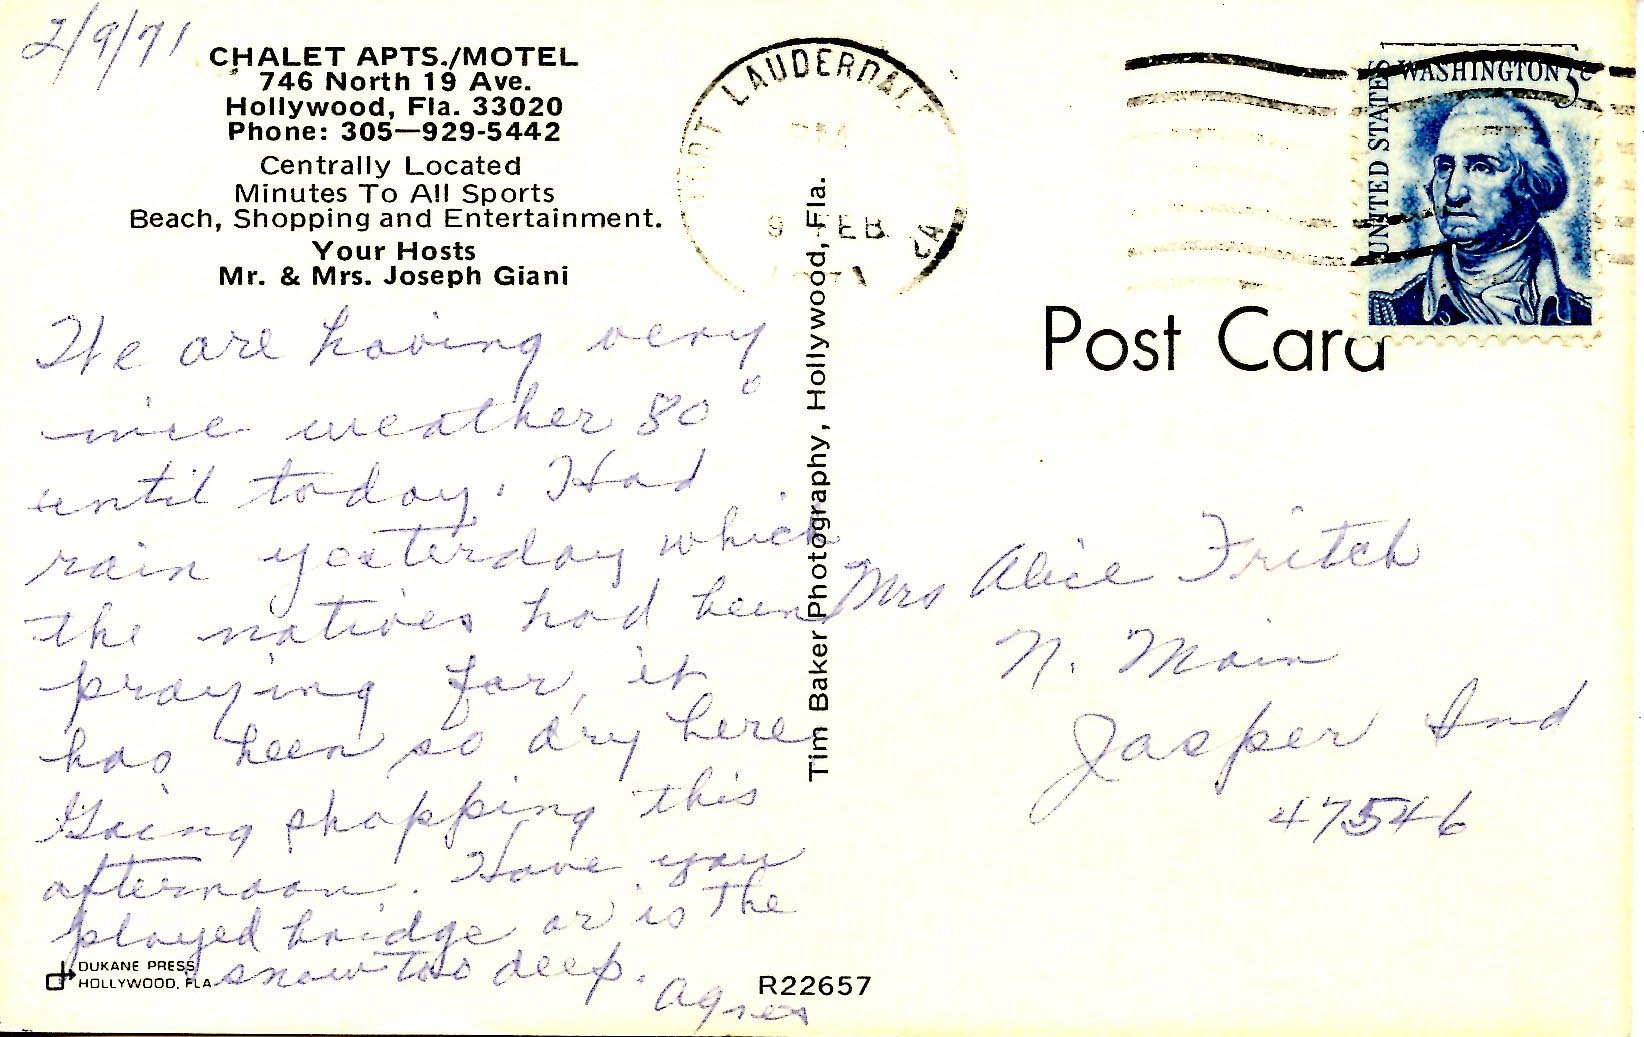 2/9/71
CHALET APTS./MOTEL
746 North 19 Ave.
Hollywood, Fla. 33020
Phone: 305—929-5442
Centrally Located
Minutes To All Sports
Beach, Shopping and Entertainment.
Your Hosts
Mr. & Mrs. Joseph Giani
We are having very
nice weather 80°
until today. Had
rain yesterday which
the natives had been
praying for, it
has been so dry here
Going shopping this
afternoon. Have you
played bridge or is the
snow too deep.
Agnes
DUKANE PRESS
HOLLYWOOD, FLA.
R22657
Tim Baker Photography, Hollywood, Fla.
FORT LAUDERDALE
9 FEB
UNITED STATES
WASHINGTON 5c
Post Card
Mrs Alice Fritch
N. Main
Jasper Ind
47546